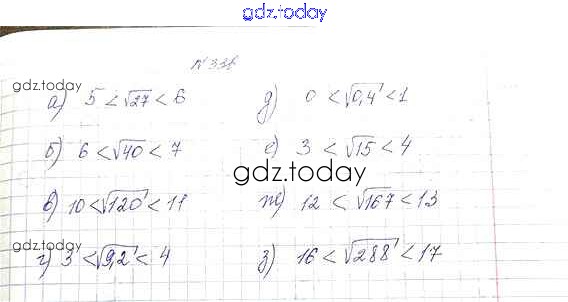 gdz.today
№ 336
gdz.today
а) 5 < √27 < 6
д) 0 < √0,4 < 1
б) 6 < √40 < 7
е) 3 < √15 < 4
gdz.today
в) 10 < √120 < 11
ж) 12 < √167 < 13
gdz.today
г) 3 < √9,2 < 4
з) 16 < √288 < 17